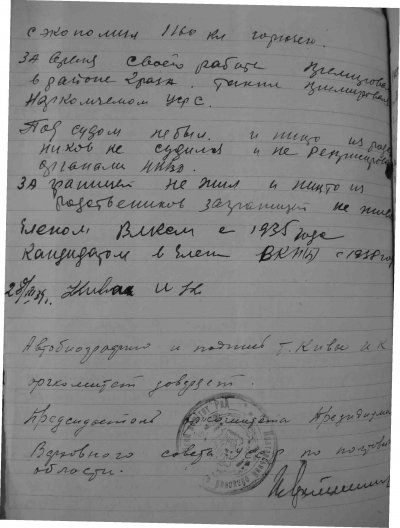 сэкономил 1160 кл горючен.
За время своей работы премирован
в районе 2 раза. Также премирован
Наркомчемом УССР.
Под судом не был. и никто из родст
ников не судился и не репрессирован
органами НКВД.
За границей не жил и никто из
родственников заграницей не жив
Членом ВЛКСМ с 1935 года
Кандидатом в члены ВКПБ с 1938 год
Кива И К
Автобиографию и подпись т. Кивы И.К
оргкомитет доверяет.
Председатель оргкомитета Президиума
Верховного совета УССР по
области.